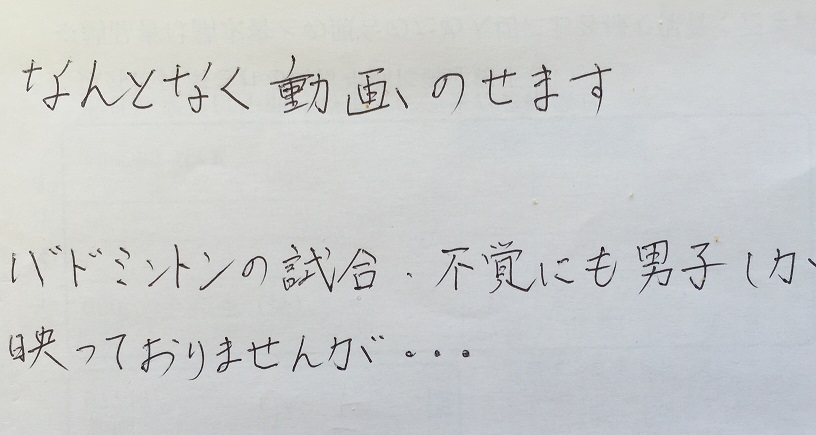 なんとなく動画、のせます
バドミントンの試合。不覚にも男子しか
映っておりませんが・・・